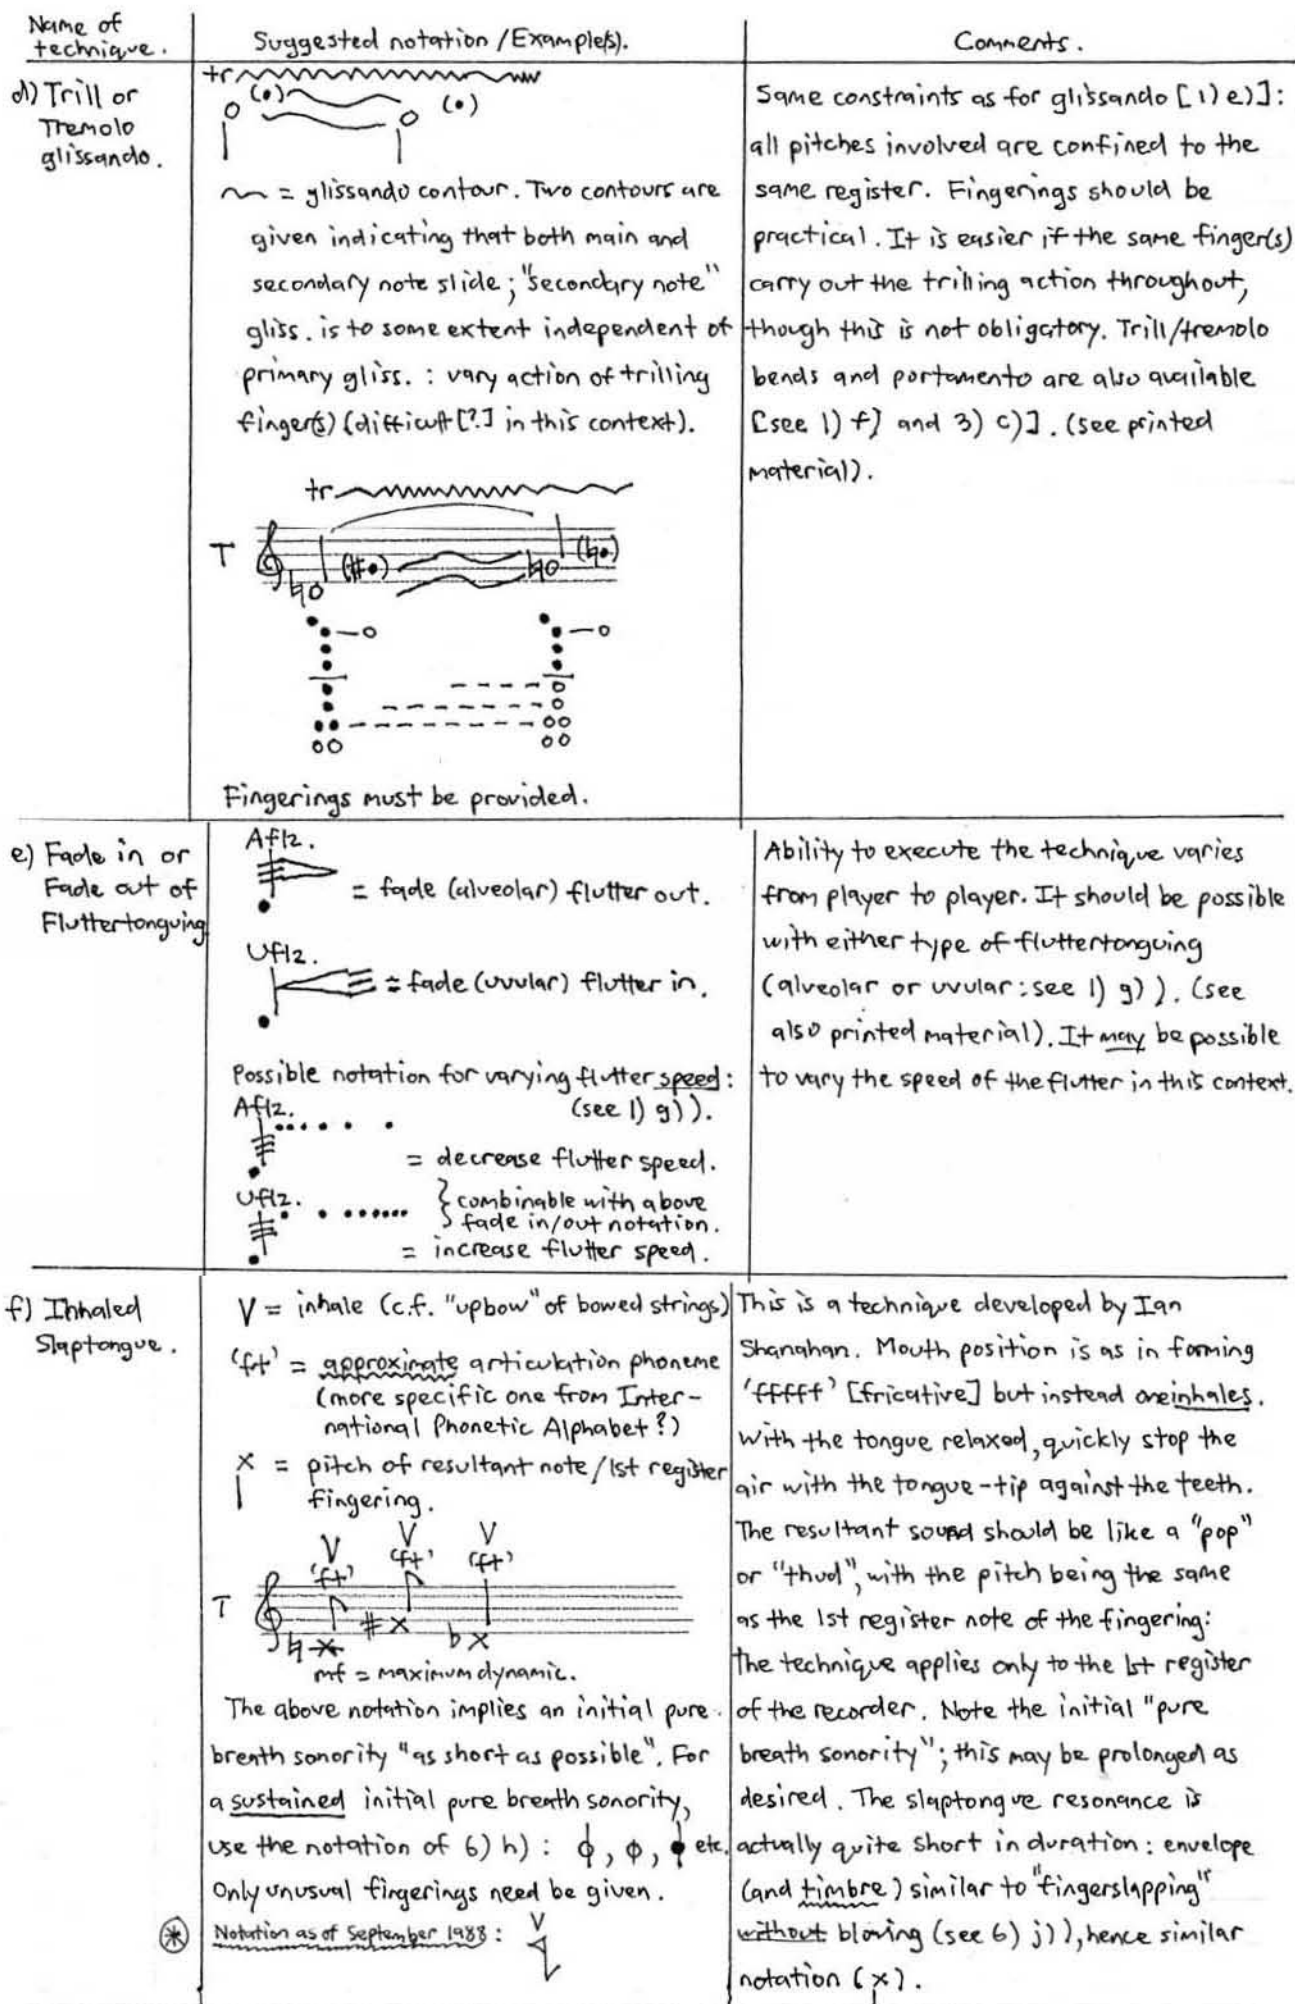 Name of
technique.
Suggested notation / Example(s).
Comments.
d) Trill or
Tremolo
glissando.
tr
(•) (•)
~ = glissando contour. Two contours are
given indicating that both main and
secondary note slide; "secondary note"
gliss. is to some extent independent of
primary gliss. : vary action of trilling
finger(s) (difficult [?] in this context).
tr
T
Fingerings must be provided.
Same constraints as for glissando [1) e)]:
all pitches involved are confined to the
same register. Fingerings should be
practical. It is easier if the same finger(s)
carry out the trilling action throughout,
though this is not obligatory. Trill/tremolo
bends and portamento are also available
[see 1) f) and 3) c)]. (see printed
material).
e) Fade in or
Fade out of
Fluttertonguing
Aflz.
= fade (alveolar) flutter out.
Uflz.
= fade (uvular) flutter in.
Possible notation for varying flutter speed:
(see 1) g)).
Aflz.
= decrease flutter speed.
Uflz.
} combinable with above
fade in/out notation.
= increase flutter speed.
Ability to execute the technique varies
from player to player. It should be possible
with either type of fluttertonguing
(alveolar or uvular: see 1) g)). (see
also printed material). It may be possible
to vary the speed of the flutter in this context.
f) Inhaled
Slaptongue.
V = inhale (c.f. "upbow" of bowed strings)
'ft' = approximate articulation phoneme
(more specific one from Inter-
national Phonetic Alphabet?)
x = pitch of resultant note/1st register
fingering.
V V V
'ft' 'ft' 'ft'
T
♮x #x bx
mf = maximum dynamic.
The above notation implies an initial pure
breath sonority "as short as possible". For
a sustained initial pure breath sonority,
use the notation of 6) h) : ϕ, ϕ, etc.
Only unusual fingerings need be given.
Notation as of September 1988 : V
This is a technique developed by Ian
Shanahan. Mouth position is as in forming
'fffff' [fricative] but instead one inhales.
With the tongue relaxed, quickly stop the
air with the tongue-tip against the teeth.
The resultant sound should be like a "pop"
or "thud", with the pitch being the same
as the 1st register note of the fingering:
the technique applies only to the 1st register
of the recorder. Note the initial "pure
breath sonority"; this may be prolonged as
desired. The slaptongue resonance is
actually quite short in duration: envelope
(and timbre) similar to "fingerslapping"
without blowing (see 6) j)), hence similar
notation (x).